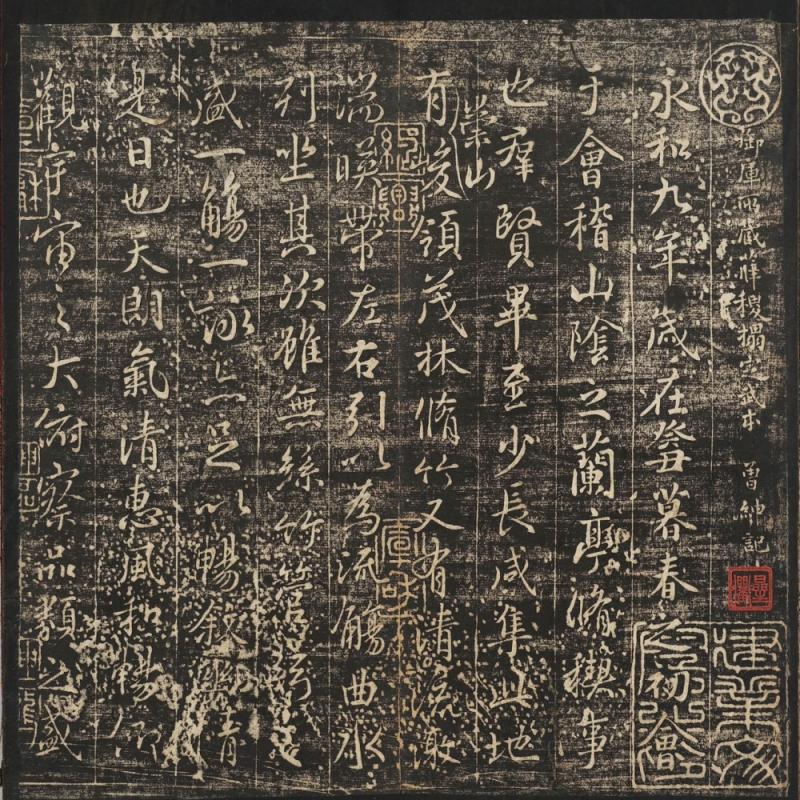 御庫所藏稷搨定武本 曾紳記
永和九年歲在癸丑暮春之初會
于會稽山陰之蘭亭脩稧事
也羣賢畢至少長咸集此地
有崇山峻領茂林脩竹又有清流激
湍暎帶左右引以為流觴曲水
列坐其次雖無絲竹管弦之
盛一觴一詠亦足以暢敘幽情
是日也天朗氣清惠風和暢仰
觀宇宙之大俯察品類之盛